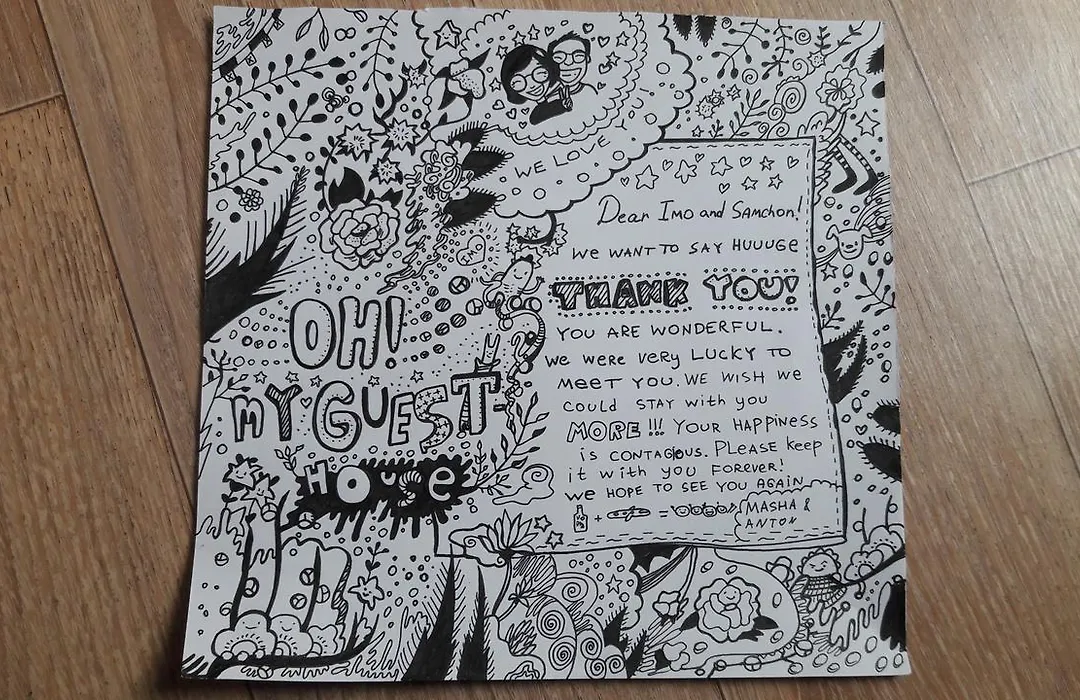 WE LOVE YOU
IMO
OH!
MY GUEST
HOUSE
Dear Imo and Samchon!
WE WANT TO SAY HUUUGE
THANK YOU!
YOU ARE WONDERFUL.
WE WERE VERY LUCKY TO
MEET YOU. WE WISH WE
COULD STAY with you
MORE!!! YOUR HAPPINESS
is CONTAGIOUS. Please keep
it with you FOREVER!
We HOPE TO SEE YOU AGAIN
+ =
MASHA &
ANTON